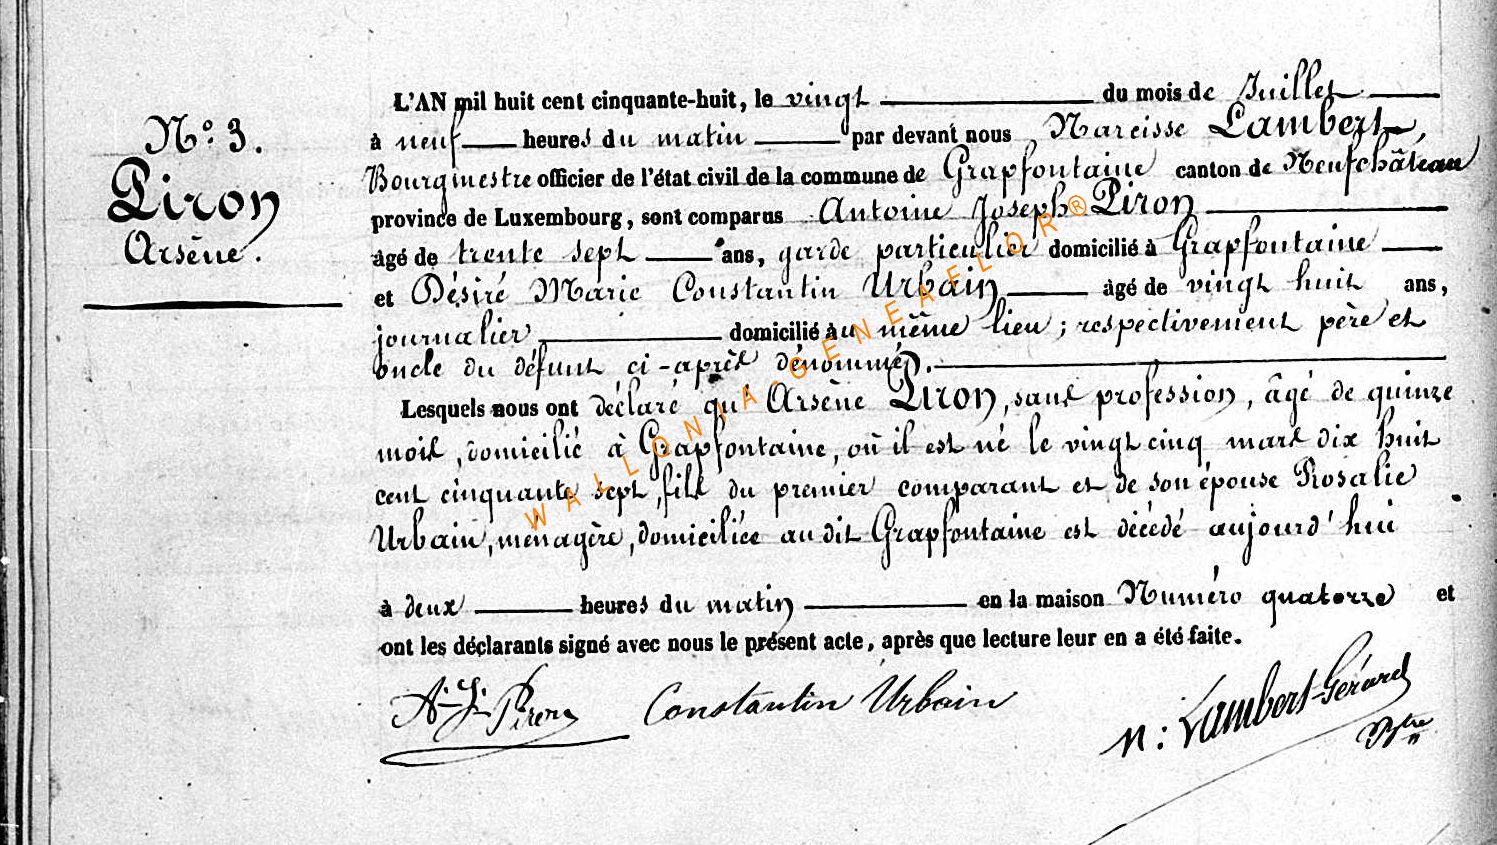 N.º 3.
Piron
Arsène.
L'AN mil huit cent cinquante-huit, le vingt du mois de Juillet
à neuf heures du matin par devant nous Narcisse Lambert,
Bourgmestre officier de l'état civil de la commune de Grapfontaine canton de Neufchâteau
province de Luxembourg, sont comparus Antoine Joseph Piron
âgé de trente sept ans, garde particulier domicilié à Grapfontaine
et Désiré Marie Constantin Urbain âgé de vingt huit ans,
journalier domicilié au même lieu ; respectivement père et
oncle du défunt ci-après dénommé.
Lesquels nous ont déclaré qu'Arsène Piron, sans profession, âgé de quinze
mois, domicilié à Grapfontaine, où il est né le vingt cinq mars dix huit
cent cinquante sept, fils du premier comparant et de son épouse Rosalie
Urbain, ménagère, domiciliée au dit Grapfontaine est décédé aujourd'hui
à deux heures du matin en la maison Numéro quatorze et
ont les déclarants signé avec nous le présent acte, après que lecture leur en a été faite.
A-J- Piron Constantin Urbain N: Lambert-Gérard
Bgtre
WALLONIA-GENEAFLOR®